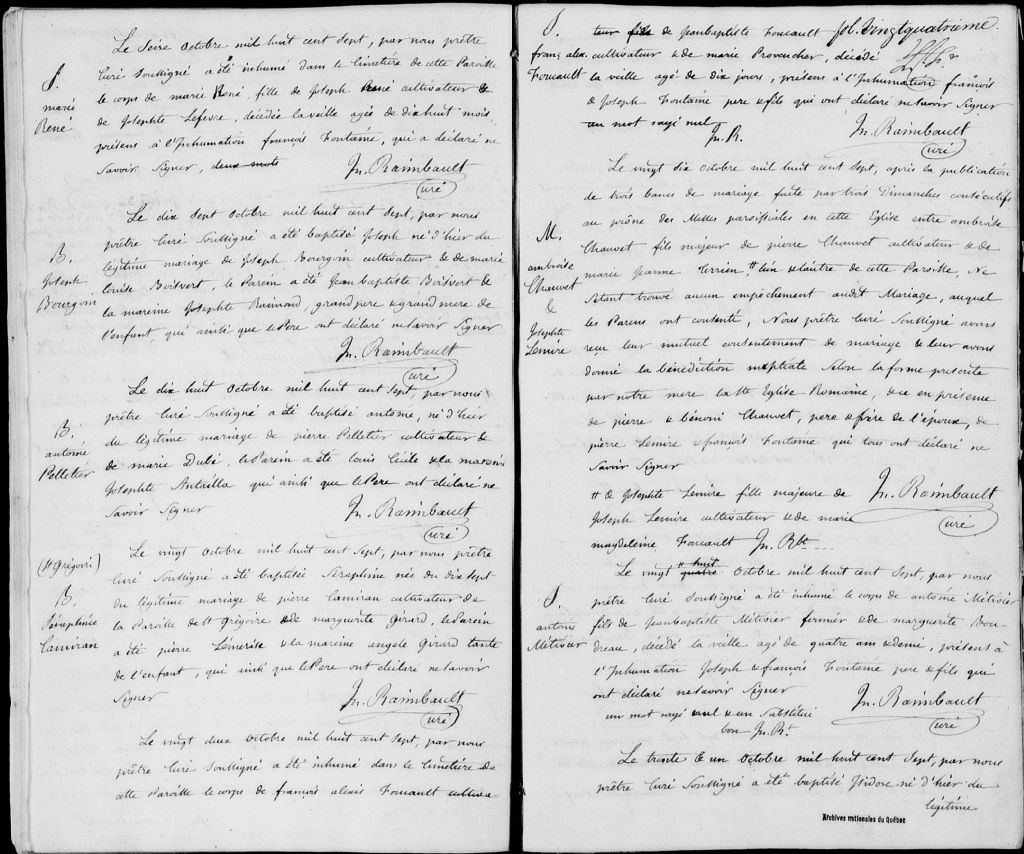 Le Seire Octobre mil huit cent Sept, par nous prêtre
Curé Soussigné a été inhumé dans le Cimetiére de cette Paroisse
S.
marie
René
le corps de marie René, fille de Joseph René cultivateur &
de Josephte Lefevre, décédée la veille agée de dix huit mois,
présens à l'Inhumation françois Fontaine, qui a déclaré ne
Savoir Signer, deux mots
Jn. Raimbault
Curé
Le dix Sept Octobre mil huit cent Sept, par nous
prêtre Curé Soussigné a été baptisé Joseph né d'hier du
B.
Joseph
Bourgoin
légitime mariage de Joseph Bourgoin cultivateur & de marie
Louise Boisvert, le Parein a été Jean baptiste Boisvert &
la mareine Josephte Raimond, grand pere & grand mere de
l'enfant, qui ainsi que le Pere ont déclaré ne savoir Signer
Jn. Raimbault
Curé
Le dix huit Octobre mil huit cent Sept, par nous
prêtre Curé Soussigné a été baptisé antoine, né d'hier
B.
antoine
Pelletier
du légitime mariage de pierre Pelletier cultivateur &
de marie Dubé, le Parein a été Louis Cécile & la mareine
Josephte Antailla qui ainsi que le Pere ont déclaré ne
Savoir Signer
Jn. Raimbault
Curé
(St Grégoire)
Le vingt Octobre mil huit cent Sept, par nous prêtre
Curé Soussigné a été baptisée Séraphine née du dix Sept
B.
Séraphine
Camiran
du légitime mariage de pierre Camiran cultivateur de
la Paroisse de St Grégoire & de marguerite Girard, le Parein
a été pierre Lémerise & la mareine angele Girard tante
de l'enfant, qui ainsi que le Pere ont déclaré ne savoir
Signer
Jn. Raimbault
Curé
Le vingt deux Octobre mil huit cent Sept, par nous
prêtre Curé Soussigné a été inhumé dans le Cimetiére de
cette Paroisse le corps de françois alexis Foucault cultiva
fol. Vingtquatrieme.
S.
franç. alex.
Foucault
teur fils de Jeanbaptiste Foucault
cultivateur & de marie Provencher, décédé
la veille agé de dix jours, présens à l'Inhumation françois
& Joseph Fontaine pere & fils qui ont déclaré ne savoir Signer
un mot rayé nul
Jn. R.
Jn. Raimbault
Curé
Le vingt dix Octobre mil huit cent Sept, après la publication
de trois bancs de mariage faite par trois Dimanches consécutifs
au prône des Messes paroissiales en cette Eglise entre ambroise
M.
ambroise
Chauvet
&
Josephte
Lemire
Chauvet fils majeur de pierre Chauvet cultivateur & de
marie Jeanne Terrien # l'un & l'autre de cette Paroisse, Ne
S'étant trouvé aucun empêchement audit Mariage, auquel
les Parens ont consenté, Nous prêtre Curé Soussigné avons
reçu leur mutuel consentement de mariage & leur avons
donné la bénédiction nuptiale Selon la forme prescrite
par notre mere la Ste Eglise Romaine, & ce en présence
de pierre & bénoni Chauvet, pere & frere de l'époux, de
pierre Lemire & françois Fontaine qui tous ont déclaré ne
Savoir Signer
# & Josephte Lemire fille majeure de
Joseph Lemire cultivateur & de marie
magdeleine Foucault Jn. Rbt
Jn. Raimbault
Curé
Le vingt quatre # huit Octobre mil huit cent Sept, par nous
prêtre Curé Soussigné a été inhumé le corps de antoine Métivier
S.
antoine
Métivier
fils de Jeanbaptiste Métivier fermier & de marguerite Bou-
dreau, décédé la veille agé de quatre ans & demie, présens à
l'Inhumation Joseph & françois Fontaine pere & fils qui
ont déclaré ne savoir Signer
un mot rayé nul & un Substitué
bon Jn. Rt.
Jn. Raimbault
Curé
Le trente & un Octobre mil huit cent Sept, par nous
prêtre Curé Soussigné a été baptisé Isidore né d'hier du
légitime
Archives nationales du Québec